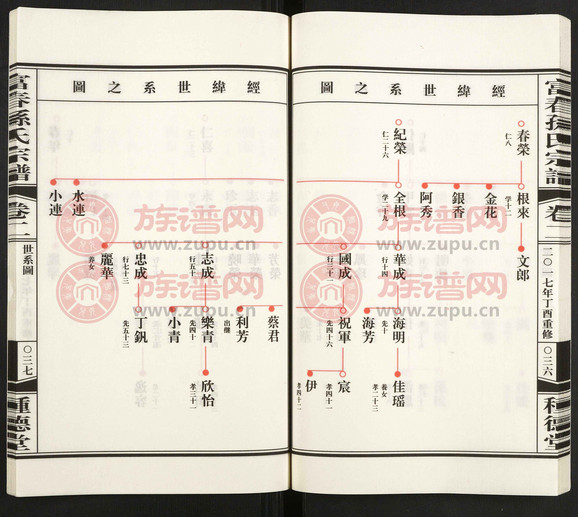 富春孫氏宗譜
卷二
二〇一七年丁酉重修
〇三六
種德堂
經緯世系之圖
春榮
仁八
根來
学十二
文郎
金花
銀香
阿秀
紀榮
仁二十六
全根
学二十九
華成
行十四
海明
先十
佳瑶
養女
孝二十三
海芳
國成
行三十一
祝軍
先四十六
宸
孝四十一
伊
孝四十二
經緯世系之圖
水連
小連
志成
行五十
樂青
先四十
欣怡
孝三十一
蔡君
利芳
出继
小青
忠成
行七十三
丁釩
先五十三
麗華
养女
富春孫氏宗譜
卷二
世系圖
〇三七
種德堂
族谱网
www.zupu.cn
族谱网
www.zupu.cn